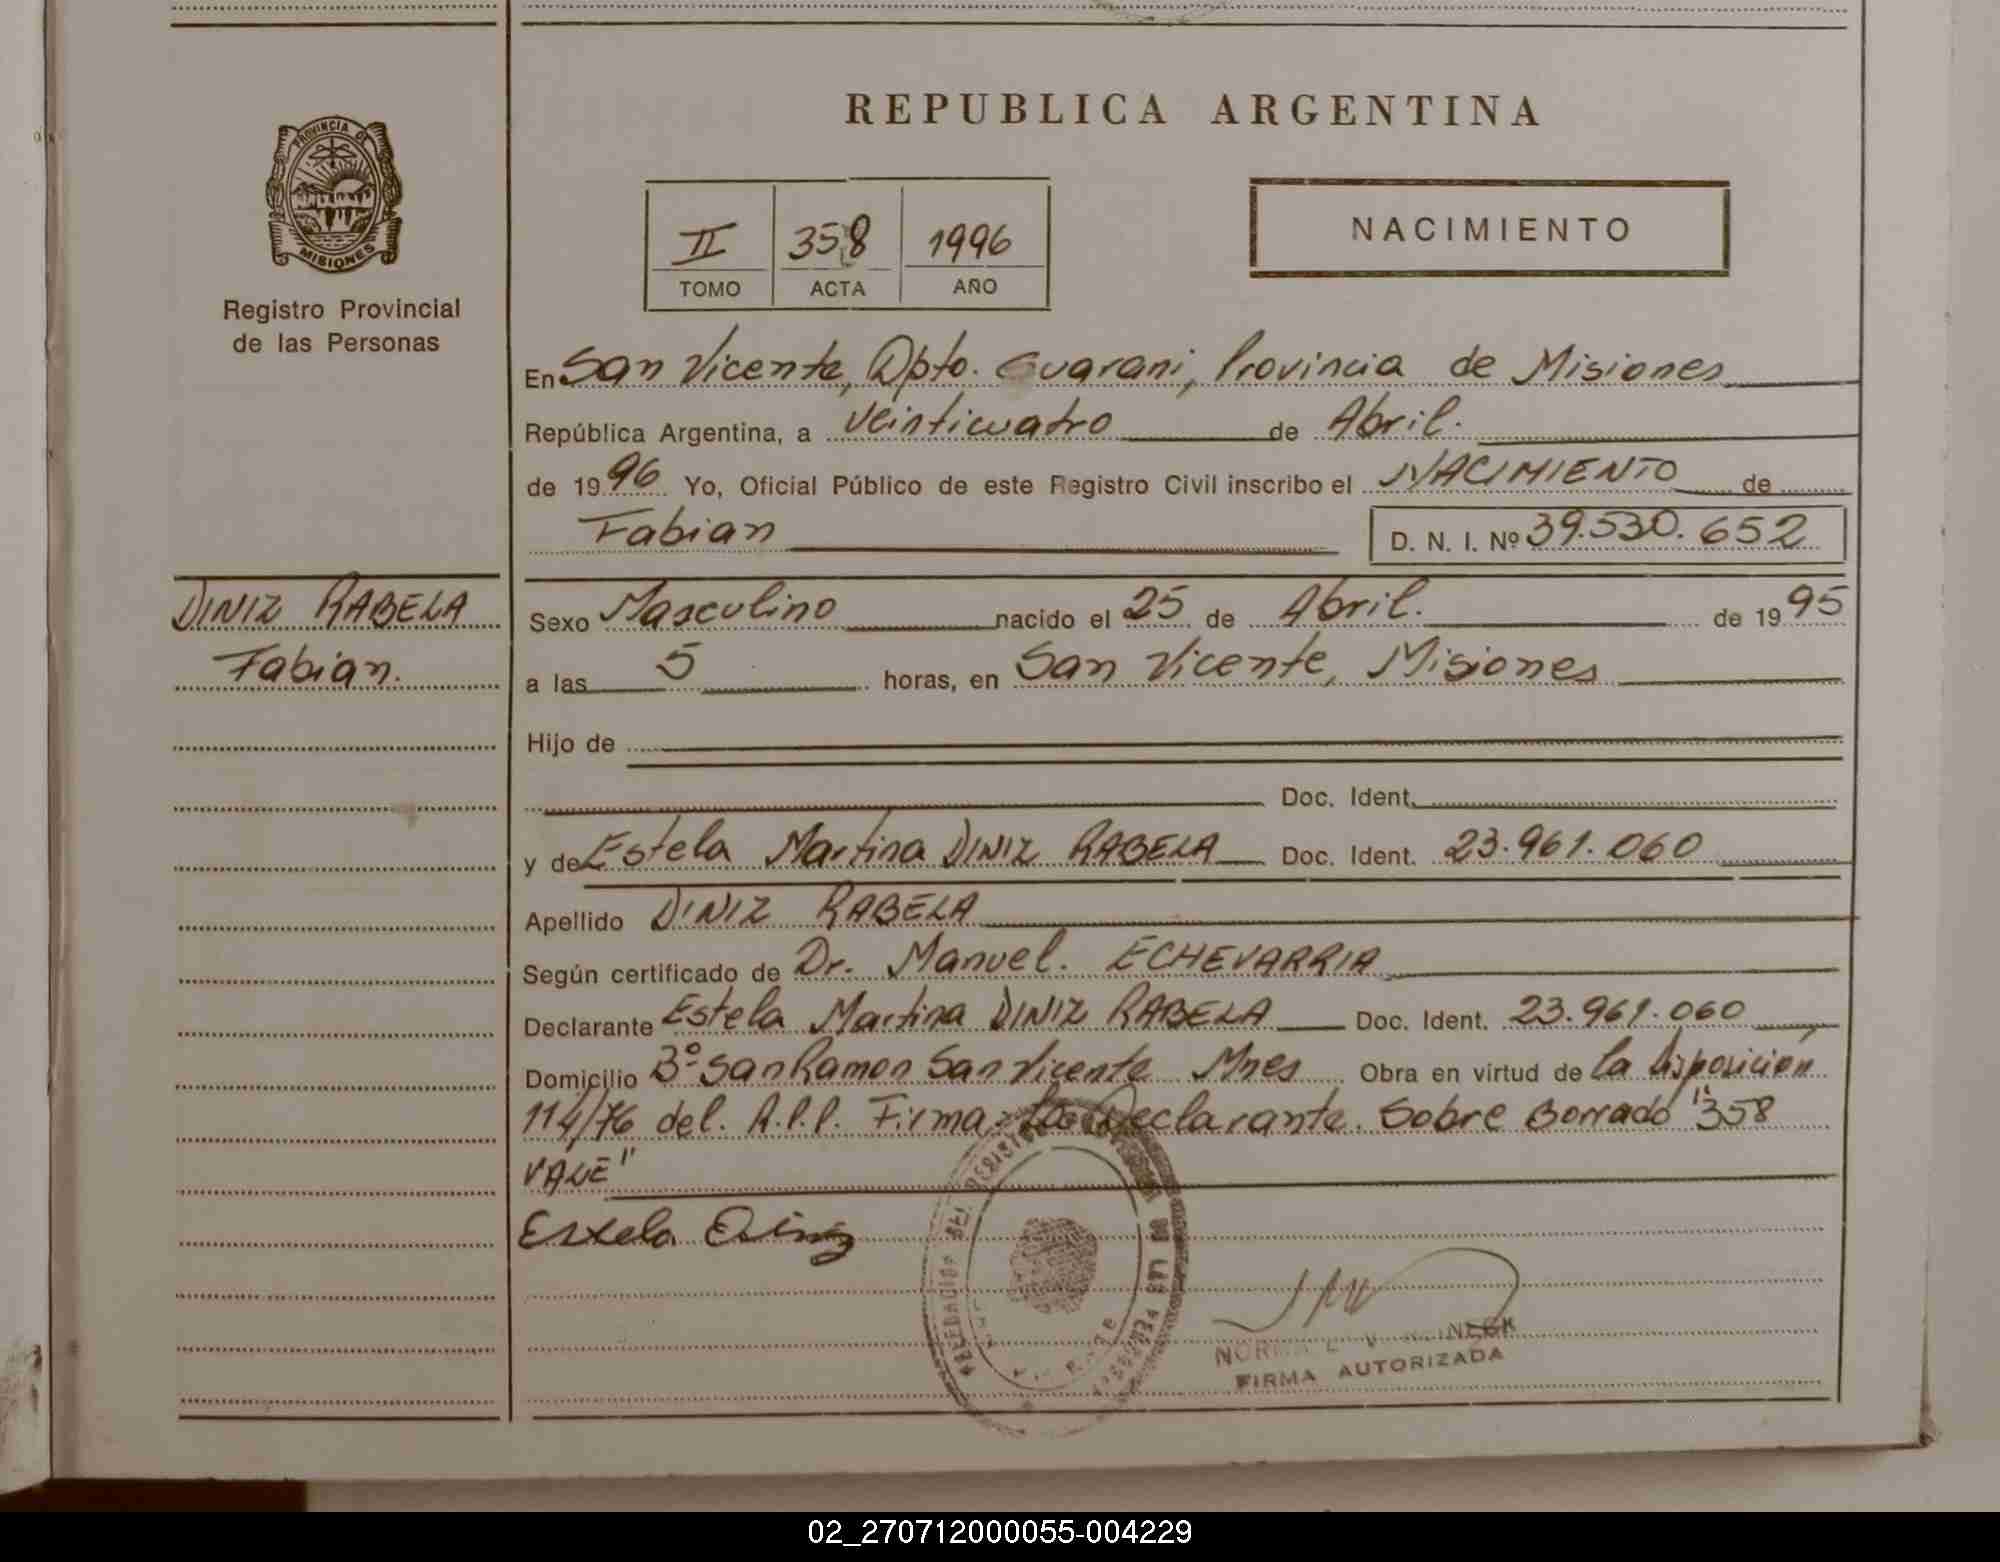 REPUBLICA ARGENTINA
PROVINCIA DE MISIONES
Registro Provincial
de las Personas
II 358 1996
TOMO ACTA AÑO
NACIMIENTO
En San Vicente, Dpto. Guarani, Provincia de Misiones
República Argentina, a veinticuatro de Abril.
de 1996 Yo, Oficial Público de este Registro Civil inscribo el NACIMIENTO de
Fabian D. N. I. Nº 39.530.652
DINIZ RABELA
Fabian.
Sexo Masculino nacido el 25 de Abril. de 1995
a las 5 horas, en San Vicente, Misiones
Hijo de
Doc. Ident.
y de Estela Martina DINIZ RABELA Doc. Ident. 23.961.060
Apellido DINIZ RABELA
Según certificado de Dr. Manuel. ECHEVARRIA
Declarante Estela Martina DINIZ RABELA Doc. Ident. 23.961.060
Domicilio Bº San Ramon San Vicente Mnes Obra en virtud de la disposición
114/76 del. R.P.P. Firma: La Declarante. Sobre Borrado "358
VALE"
Estela Diniz
NORMA
FIRMA AUTORIZADA
02_270712000055-004229